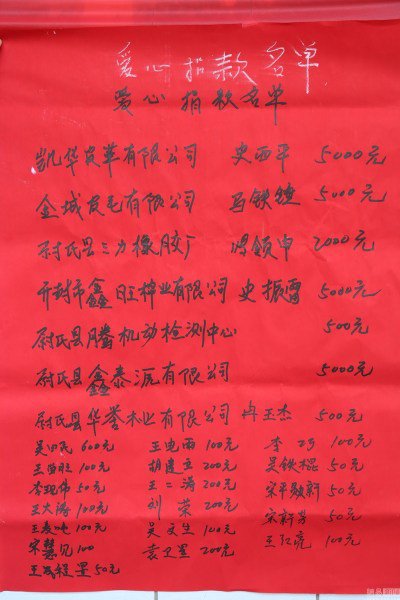 爱心捐款名单
爱心捐款名单
凯华皮革有限公司 史西平 5000元
金城皮毛有限公司 马铁锤 5000元
尉氏县三力橡胶厂 冯領申 2000元
开封市鑫旺棉业有限公司 史振雷 5000元
尉氏县腾机动检测中心 500元
尉氏县鑫泰源有限公司 5000元
尉氏县华誉木业有限公司 冉王杰 500元
吴旧民 600元 王忠雨 100元 李巧 100元
100元 胡建立 200元 吴铁棍 50元
李现伟 50元 王二涛 200元 宋平 50元
王大海 100元 刘荣 200元 50元
100元 吴文生 100元 王红亮 100元
宋慧 100 袁卫星 200元
50元